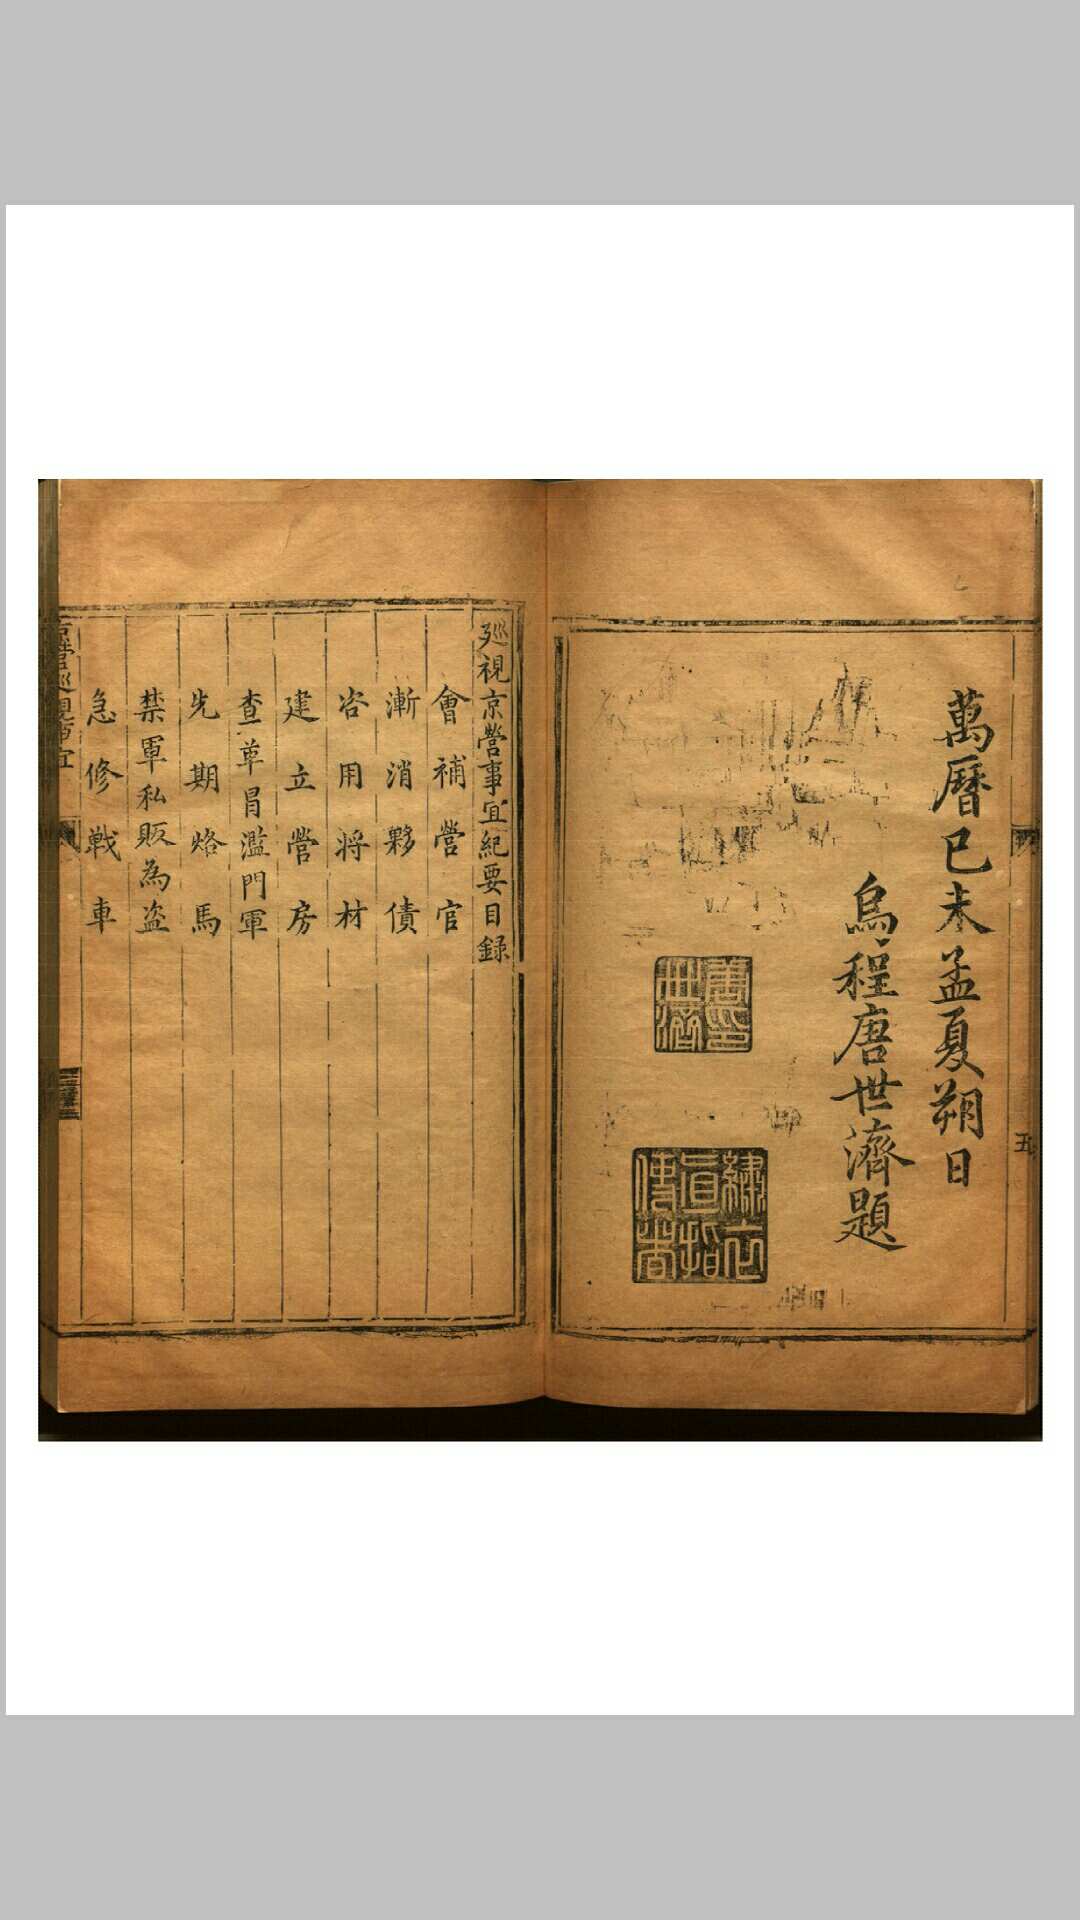 萬曆己未孟夏朔日
烏程唐世濟題
唐印世濟
繡衣直指使者
五
廵視京營事宜紀要目録
會補營官
漸消夥債
咨用將材
建立營房
查革冒濫門軍
先期烙馬
禁軍私販為盗
急修戰車
京營廵視事宜